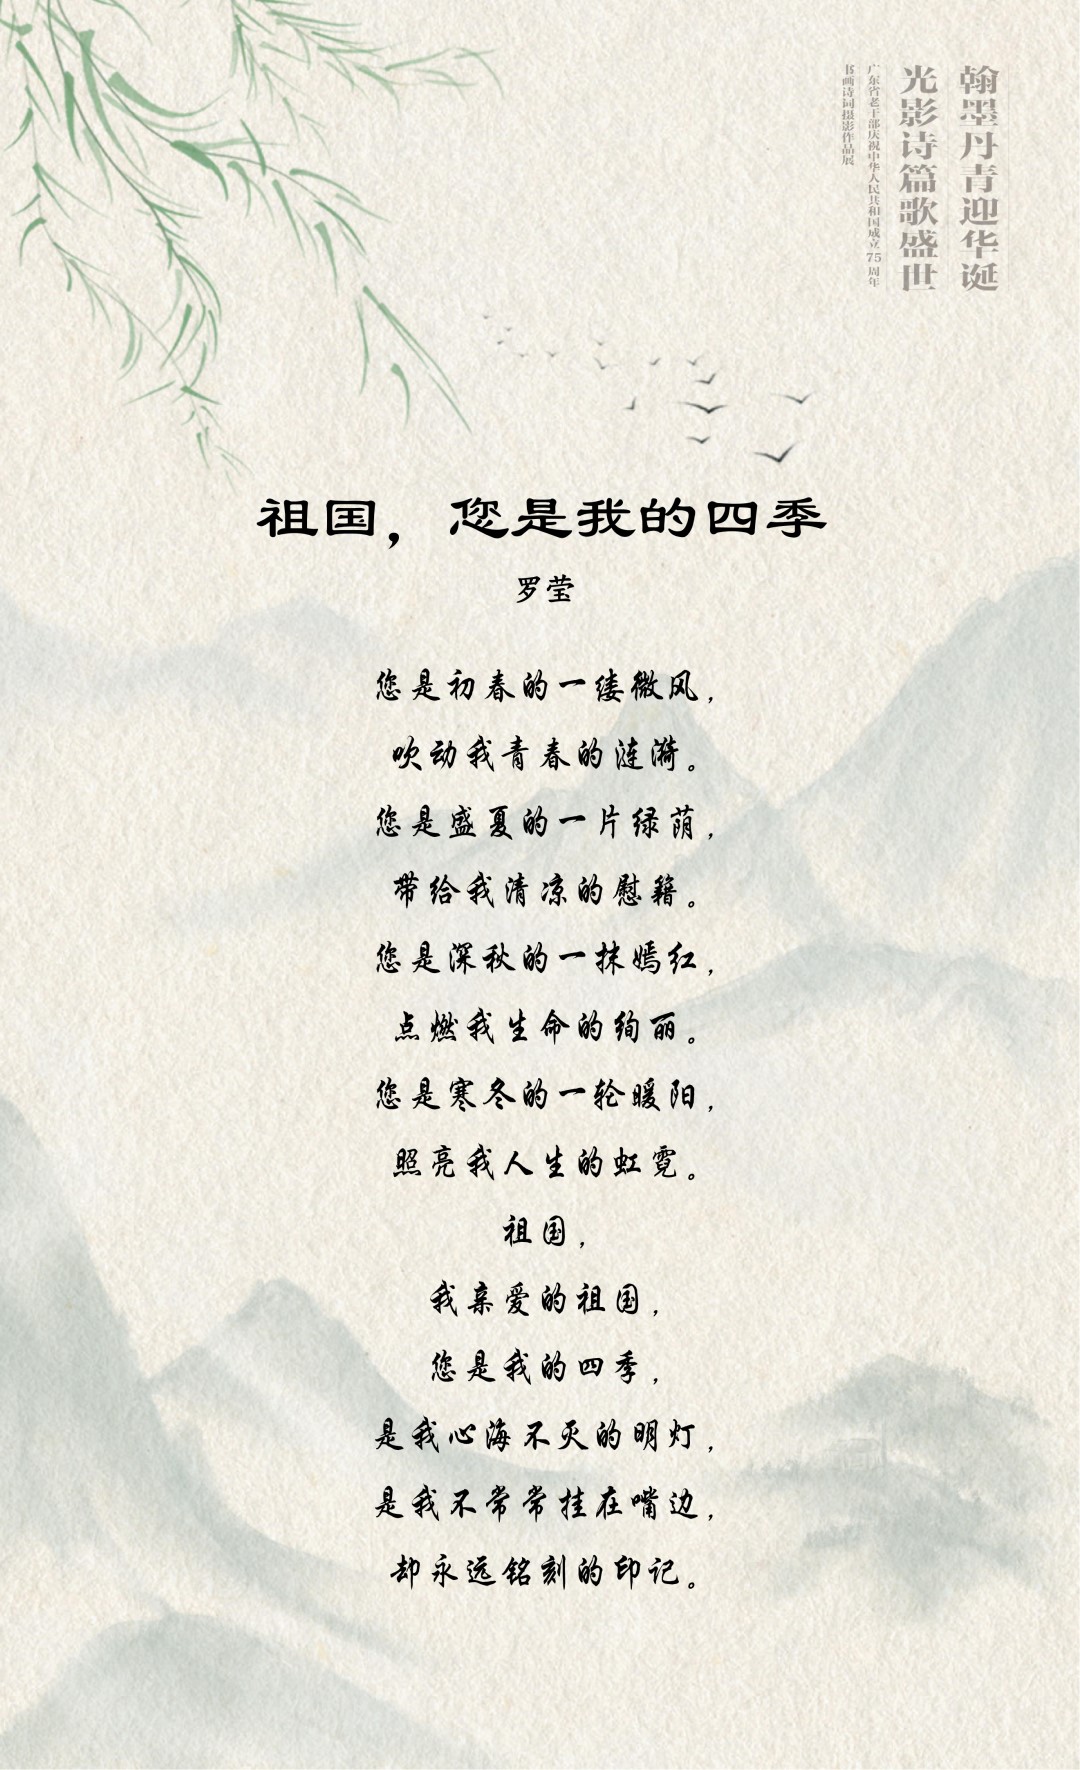 翰墨丹青迎华诞
光影诗篇歌盛世
广东省老干部庆祝中华人民共和国成立75周年
书画诗词摄影作品展
祖国，您是我的四季
罗莹
您是初春的一缕微风，
吹动我青春的涟漪。
您是盛夏的一片绿荫，
带给我清凉的慰籍。
您是深秋的一抹嫣红，
点燃我生命的绚丽。
您是寒冬的一轮暖阳，
照亮我人生的虹霓。
祖国，
我亲爱的祖国，
您是我的四季，
是我心海不灭的明灯，
是我不常常挂在嘴边，
却永远铭刻的印记。